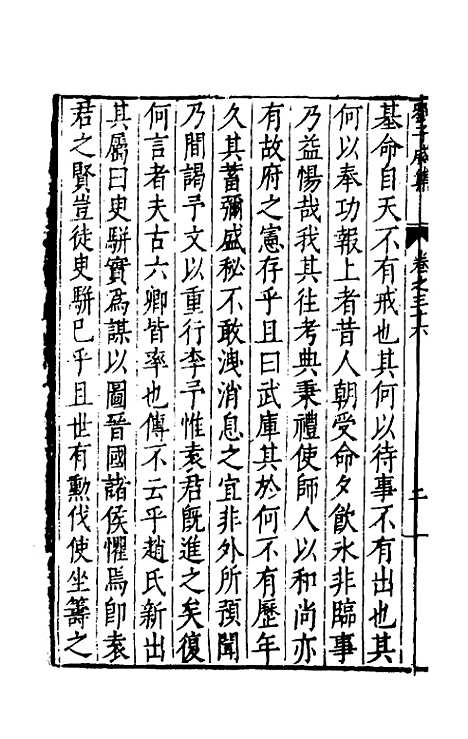 基命自天不有戒也其何以待事不有出也其
何以奉功報上者昔人朝受命夕飲氷非臨事
乃益惕哉我其往考典秉禮使師人以和尚亦
有故府之憲存乎且曰武庫其於何不有歷年
久其蓄彌盛秘不敢洩消息之宜非外所預聞
乃間謁予文以重行李予惟袁君旣進之矣復
何言者夫古六卿皆率也傳不云乎趙氏新出
其屬曰史駢實為謀以圖晉國諸侯懼焉卽袁
君之賢豈徒史駢巳乎且世有勳伐使坐籌之
卷之三十六
二